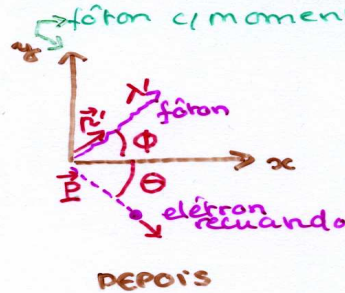 fóton c/ moment
y
λ'
fóton
n'
Φ
x
Θ
P
elétron
recuando
DEPOIS